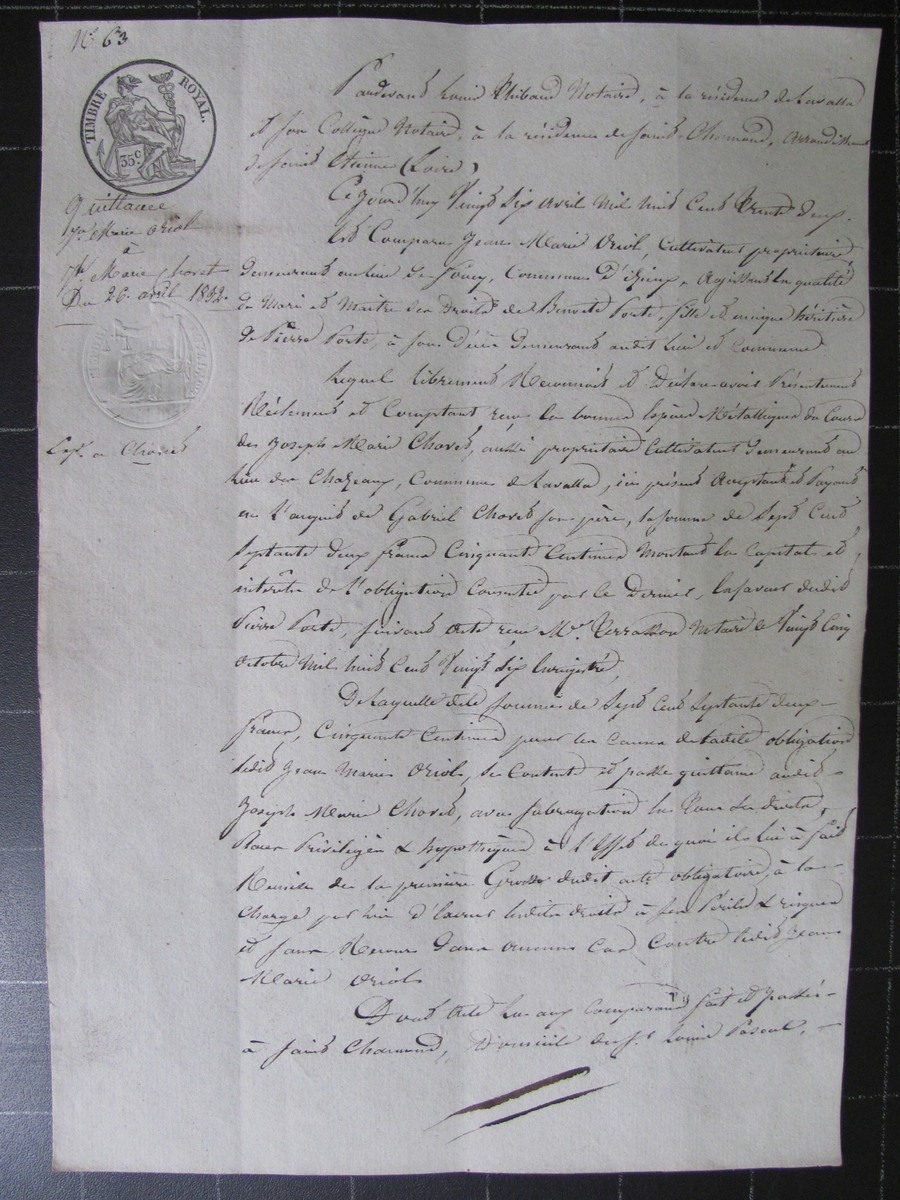 N.° 63
TIMBRE ROYAL.
35c
Quittance
Jn Marie Oriol
à
Jh Marie Chovet
Du 26 avril 1832.
Exp. a Chovet
Pardevant Louis Thibaud Notaire, à la résidence de Lavalla
et son Collègue Notaire, à la résidence de Saint Chamond, arrondissement
de Saint Etienne (Loire)
Cejourd'huy Vingt Six avril Mil huit Cent Trente deux.
Est Comparu Jean Marie Oriol, Cultivateur propriétaire,
demeurant au lieu de Commune d'izieux, agissant en qualité
de Mari et Maitre des Droits de Benoite Porte, fille et unique héritière
de Pierre Porte, à son Décès demeurant audit lieu et commune
Lequel librement Reconnait et Déclare avoir Présentement
Réellement et Comptant reçu en bonnes Espèces Métalliques du Cours
des Joseph Marie Chovet, aussi propriétaire Cultivateur demeurant au
lieu du Chazeaux, Commune de Lavalla, ici présent acceptant et Payant
en l'acquit de Gabriel Chovet son père, la somme de Sept Cent
Septante deux francs Cinquante Centimes Montant en Capital et
intérêts de l'obligation Consentie par le Dernier, en faveur dudit
Pierre Porte, suivant acte reçu Me. Terrasson Notaire le Vingt Cinq
octobre Mil huit Cent Vingt Six Enregistré,
De laquelle dite somme de Sept Cent Septante deux
francs, Cinquante Centimes pour les Causes de ladite obligation
ledit Jean Marie Oriol, se Contente et passe quittance audit
Joseph Marie Chovet, avec subrogation en tous ses droits,
Places Privilèges & hypothèques à l'Effet de quoi il lui à fait
Remise de la première Grosse dudit acte obligatoire, à la
Charge par lui d'Exercer lesdits droits à ses Périls & risques
et sans Recours dans aucun Cas Contre ledit Jean
Marie Oriol
Dont acte Lu aux Comparants fait et passé
à Saint Chamond, Domicile du Sr. Louis Pascal,